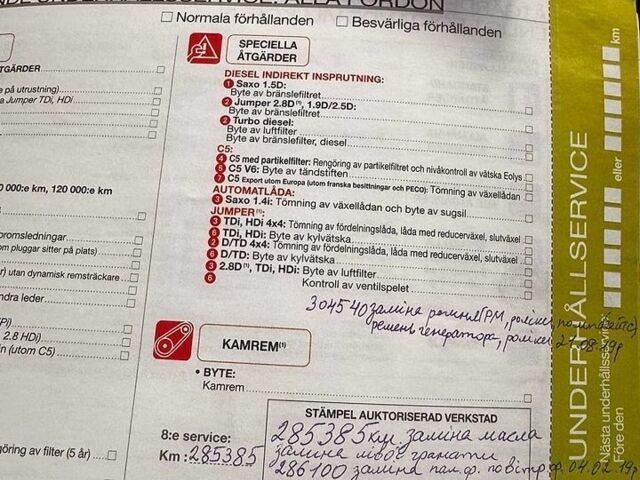 ALLA FORDON
Normala förhållanden
Besvärliga förhållanden
SPECIELLA
ÅTGÄRDER
ÅTGÄRDER
på utrustning)
a Jumper TDi, HDi
DIESEL INDIREKT INSPRUTNING:
1 Saxo 1.5D:
Byte av bränslefiltret
2 Jumper 2.8D(1), 1.9D/2.5D:
Byte av bränslefiltret
2 Turbo diesel:
Byte av luftfilter
Byte av bränslefilter, diesel
C5:
4 C5 med partikelfilter: Rengöring av partikelfiltret och nivåkontroll av vätska Eolys
6 C5 V6: Byte av tändstiften
7 C5 Export utom Europa (utom franska besittningar och PECO): Tömning av växellådan
AUTOMATLÅDA:
3 Saxo 1.4i: Tömning av växellådan och byte av sugsil
JUMPER(1):
3 TDi, HDi 4x4: Tömning av fördelningslåda, låda med reducerväxel, slutväxel
6 TDi, HDi: Byte av kylvätska
2 D/TD 4x4: Tömning av fördelningslåda, låda med reducerväxel, slutväxel
6 D/TD: Byte av kylvätska
3 2.8D(1), TDi, HDi: Byte av luftfilter
6 Kontroll av ventilspelet
000:e km, 120 000:e km
bromsledningar
om pluggar sitter på plats)
) utan dynamisk remsträckare
ndra leder
Pi)
2.8 HDi)
in (utom C5)
göring av filter (5 år)
304540 заміна ременя ГРМ, ролики,
ремень генератора, ролики 21.08.19р
KAMREM(1)
• BYTE:
Kamrem
STÄMPEL AUKTORISERAD VERKSTAD
8:e service:
Km : 285385
285385км. заміна масла
заміна
286100 заміна пал. ф. повітр ф. 04.02.19р
UNDERHÅLLSSERVICE
Nästa underhållsservice:
Före den
eller
km